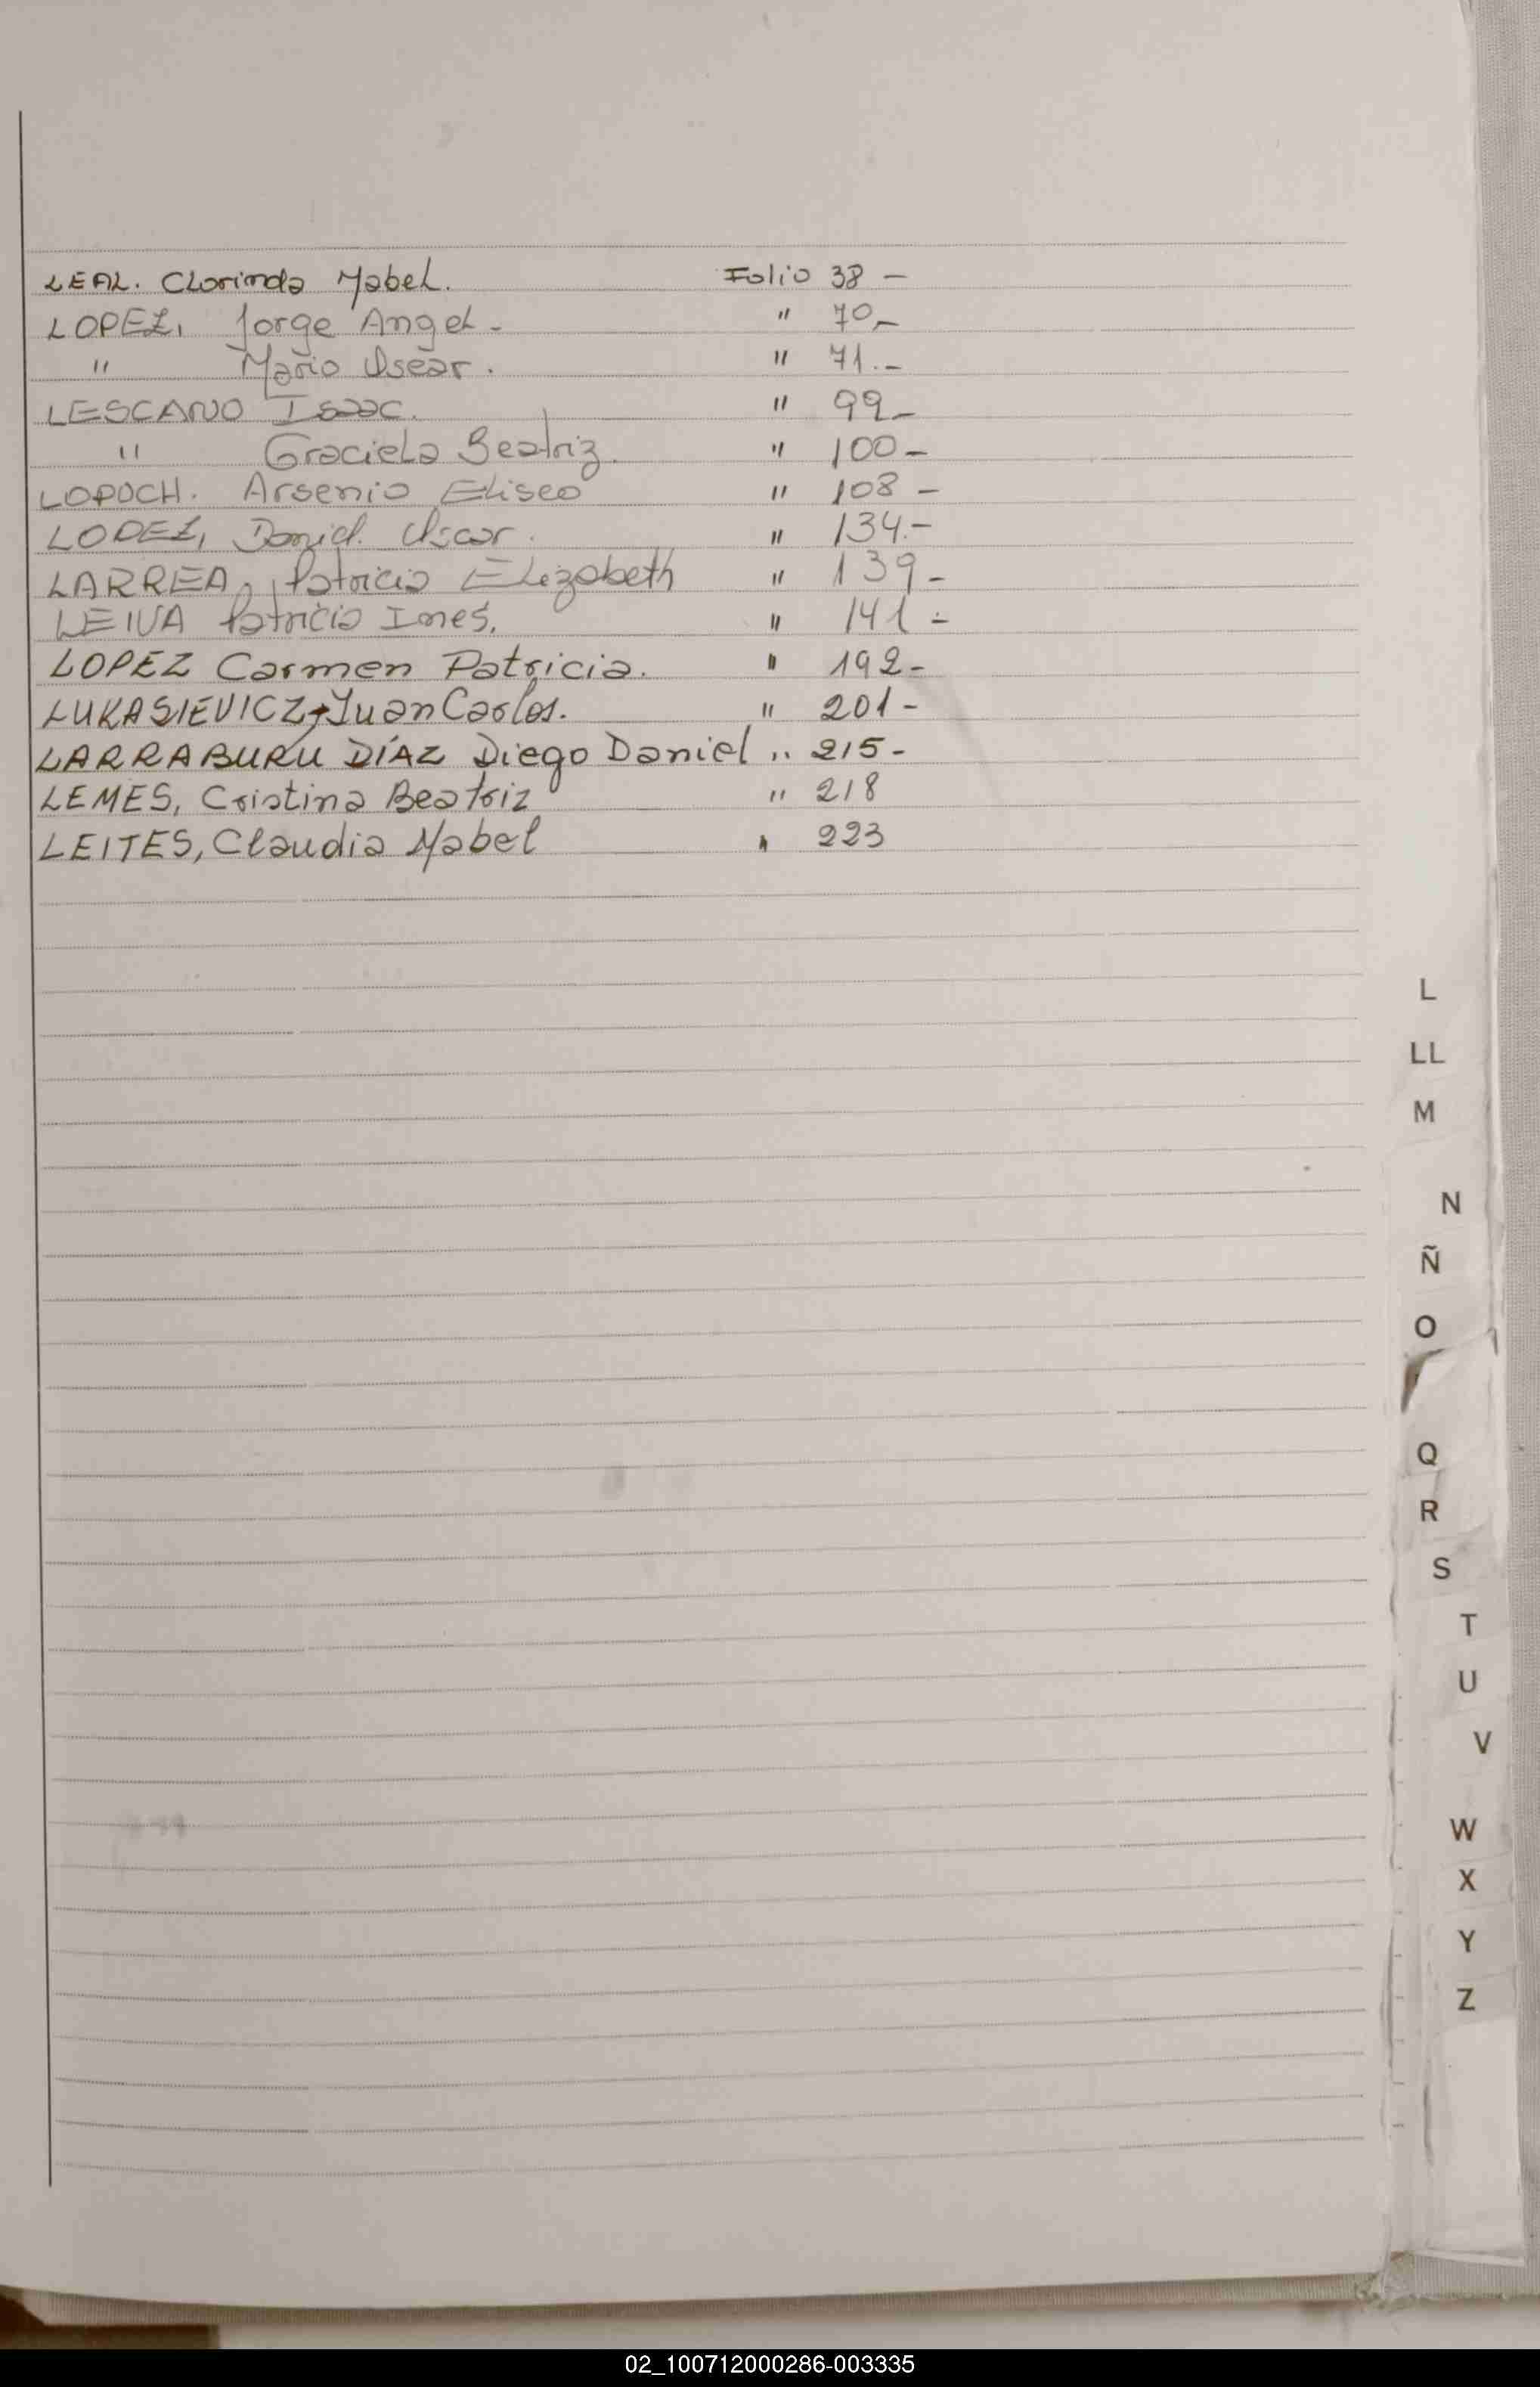 LEAL. Clorinda Mabel. Folio 38 -
LOPEZ, Jorge Angel - " 70 -
" Mario Oscar. " 71.-
LESCANO Isaac. " 99 -
" Graciela Beatriz. " 100 -
LOPOCH. Arsenio Eliseo " 108 -
LOPEZ, Daniel Oscar. " 134.-
LARREA, Patricia Elizabeth " 139 -
LEIVA Patricia Ines. " 141 -
LOPEZ Carmen Patricia. " 192 -
LUKASIEVICZ, Juan Carlos. " 201 -
LARRABURU DÍAZ Diego Daniel " 215 -
LEMES, Cristina Beatriz " 218
LEITES, Claudia Mabel " 223
L
LL
M
N
Ñ
O
Q
R
S
T
U
V
W
X
Y
Z
02_100712000286-003335